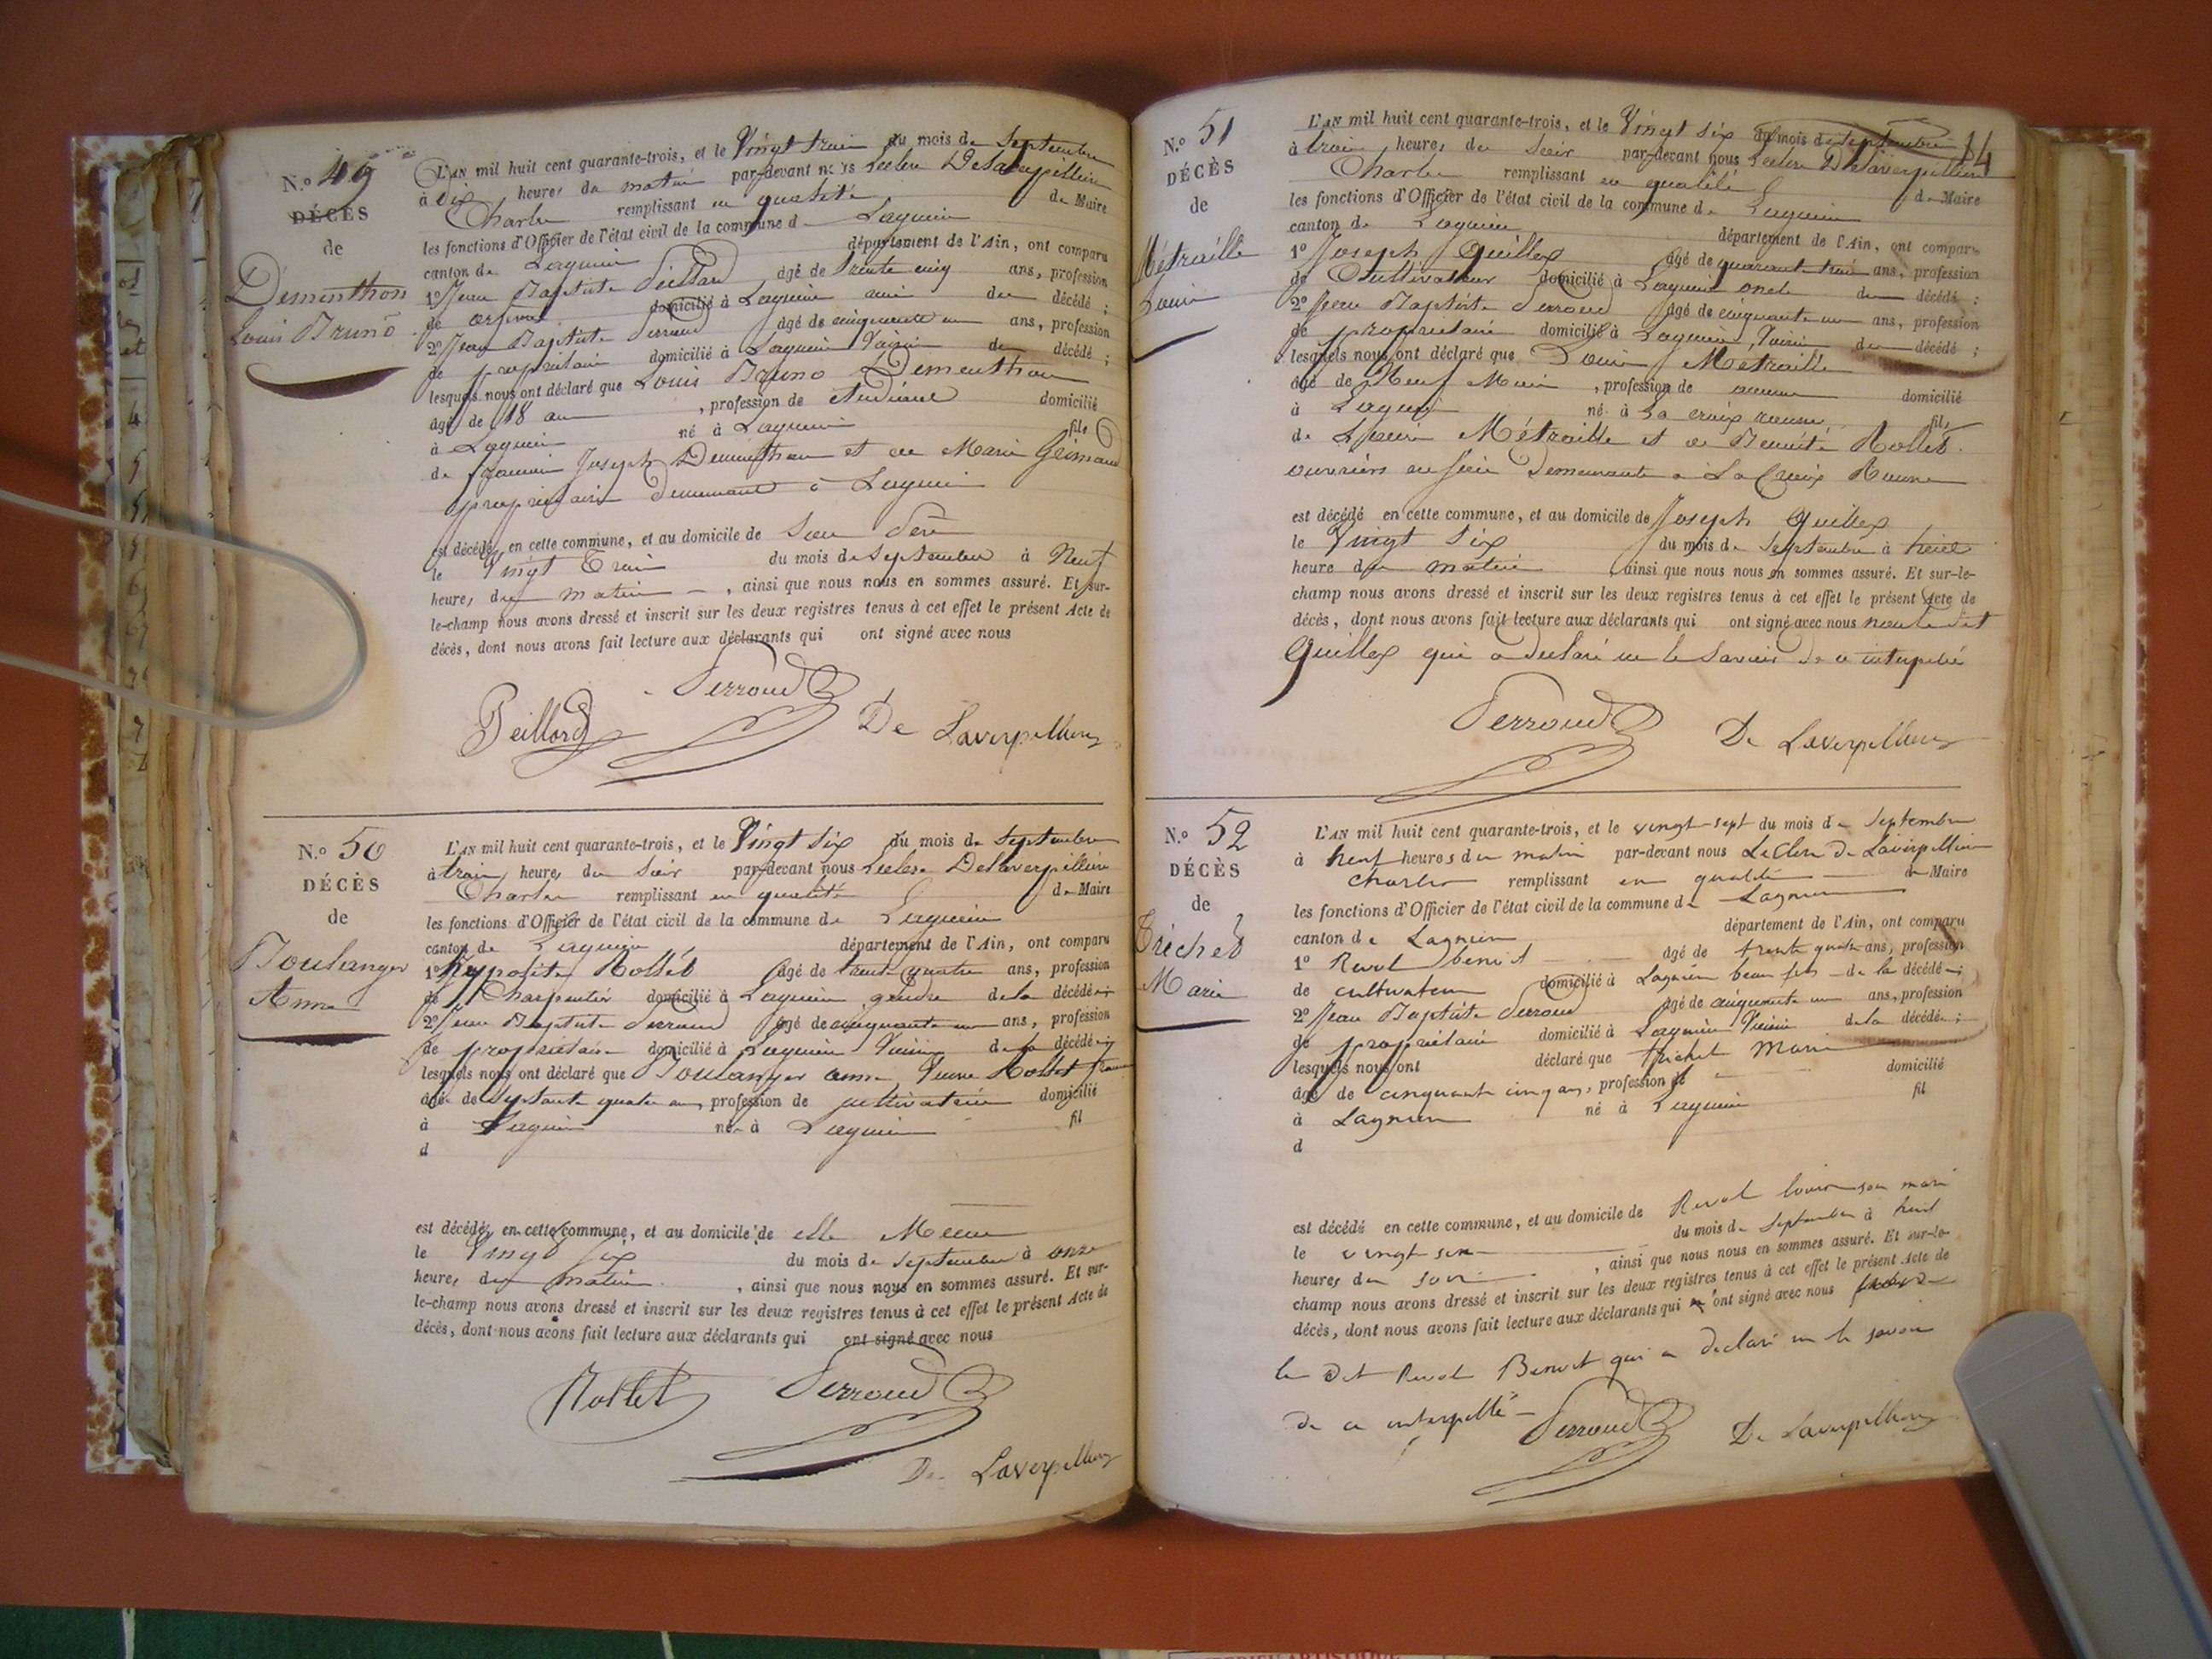 N.º 49
DÉCÈS
de
Démenthon
Louis Bruno
L'AN mil huit cent quarante-trois, et le Vingt trois du mois de Septembre
à Dix heures du matin par-devant nous Leclerc Delaverpillière
Charles remplissant en qualité de Maire
les fonctions d'Officier de l'état civil de la commune de Lagnieu
canton de Lagnieu département de l'Ain, ont comparu
1º Jean Baptiste Peillard âgé de trente cinq ans, profession
de domicilié à Lagnieu ami du décédé ;
2º Jean Baptiste Perroud âgé de cinquante un ans, profession
de propriétaire domicilié à Lagnieu Voisin du décédé ;
lesquels nous ont déclaré que Louis Bruno Démenthon
âgé de 18 ans , profession de étudiant domicilié
à Lagnieu né à Lagnieu fils
de Joseph Démenthon et de Marie Grimaud
propriétaire demeurant à Lagnieu
est décédé en cette commune, et au domicile de Son Père
le Vingt Trois du mois de Septembre à Neuf
heures du matin , ainsi que nous nous en sommes assuré. Et sur-
le-champ nous avons dressé et inscrit sur les deux registres tenus à cet effet le présent Acte de
décès, dont nous avons fait lecture aux déclarants qui ont signé avec nous
Perroud
Peillard De Laverpilliere
N.º 50
DÉCÈS
de
Boulanger
Anne
L'AN mil huit cent quarante-trois, et le Vingt six du mois de Septembre
à trois heures du Soir par-devant nous Leclerc Delaverpillière
Charles remplissant en qualité de Maire
les fonctions d'Officier de l'état civil de la commune de Lagnieu
canton de Lagnieu département de l'Ain, ont comparu
1º Hyppolite Rollet âgé de trente quatre ans, profession
de Charpentier domicilié à Lagnieu gendre de la décédée ;
2º Jean Baptiste Perroud âgé de cinquante un ans, profession
de propriétaire domicilié à Lagnieu Voisin de la décédée ;
lesquels nous ont déclaré que Boulanger anne Veuve Rollet
âgée de septante quatre ans, profession de cultivateur domicilié
à Lagnieu née à Lagnieu fil
d
est décédée en cette commune, et au domicile de elle Meme
le Vingt six du mois de Septembre à onze
heures du matin , ainsi que nous nous en sommes assuré. Et sur-
le-champ nous avons dressé et inscrit sur les deux registres tenus à cet effet le présent Acte de
décès, dont nous avons fait lecture aux déclarants qui ont signé avec nous
Rollet Perroud
De Laverpilliere
14
N.º 51
DÉCÈS
de
Métraille
Louis
L'AN mil huit cent quarante-trois, et le Vingt six du mois de Septembre
à trois heures du Soir par-devant nous Leclerc Delaverpillière
Charles remplissant en qualité de Maire
les fonctions d'Officier de l'état civil de la commune de Lagnieu
canton de Lagnieu département de l'Ain, ont comparu
1º Joseph Quillex âgé de quarante trois ans, profession
de Cultivateur domicilié à Lagnieu oncle du décédé ;
2º Jean Baptiste Perroud âgé de cinquante un ans, profession
de propriétaire domicilié à Lagnieu, Voisin du décédé ;
lesquels nous ont déclaré que Louis Métraille
âgé de Neuf Mois , profession de aucune domicilié
à Lagnieu né à La croix rousse, fils
de Métraille et de Benoite Rollet
ouvriers en soie Demeurants a La Croix Rousse
est décédé en cette commune, et au domicile de Joseph Quillex
le Vingt Six du mois de Septembre à
heure du matin , ainsi que nous nous en sommes assuré. Et sur-le-
champ nous avons dressé et inscrit sur les deux registres tenus à cet effet le présent Acte de
décès, dont nous avons fait lecture aux déclarants qui ont signé avec nous non le dit
Quillex qui a déclaré ne le Savoir de ce interpellé
Perroud De Laverpilliere
N.º 52
DÉCÈS
de
Trichet
Marie
L'AN mil huit cent quarante-trois, et le vingt-sept du mois de Septembre
à neuf heures du matin par-devant nous Leclerc De Laverpilliere
Charles remplissant en qualité de Maire
les fonctions d'Officier de l'état civil de la commune de Lagnieu
canton de Lagnieu département de l'Ain, ont comparu
1º Revol benoit âgé de trente quatre ans, profession
de cultivateur domicilié à Lagnieu beau fils de la décédée ;
2º Jean Baptiste Perroud âgé de cinquante un ans, profession
de propriétaire domicilié à Lagnieu Voisin de la décédée ;
lesquels nous ont déclaré que trichet Marie
âgé de cinquante cinq ans, profession de domicilié
à Lagnieu né à Lagnieu fil
d
est décédé en cette commune, et au domicile de Revol louis son mari
le vingt six du mois de Septembre à huit
heures du soir , ainsi que nous nous en sommes assuré. Et sur-le-
champ nous avons dressé et inscrit sur les deux registres tenus à cet effet le présent Acte de
décès, dont nous avons fait lecture aux déclarants qui ont signé avec nous
le dit Revol Benoit qui a declaré ne le savoir
de ce interpellé Perroud De Laverpilliere